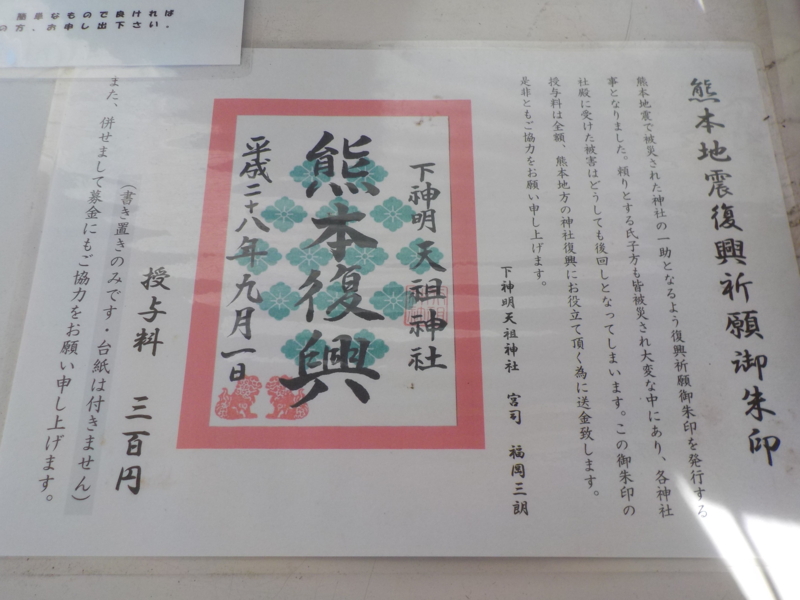 簡単なもので良ければ
の方、お申し出下さい。
熊本地震復興祈願御朱印
熊本地震で被災された神社の一助となるよう復興祈願御朱印を発行する
事となりました。頼りとする氏子方も皆被災され大変な中にあり、各神社
社殿に受けた被害はどうしても後回しとなってしまいます。この御朱印の
授与料は全額、熊本地方の神社復興にお役立て頂く為に送金致します。
是非ともご協力をお願い申し上げます。
下神明天祖神社 宮司 福岡三朗
下神明天祖神社
熊本復興
平成二十八年九月一日
授与料 三百円
（書き置きのみです・台紙は付きません）
また、併せまして募金にもご協力をお願い申し上げます。